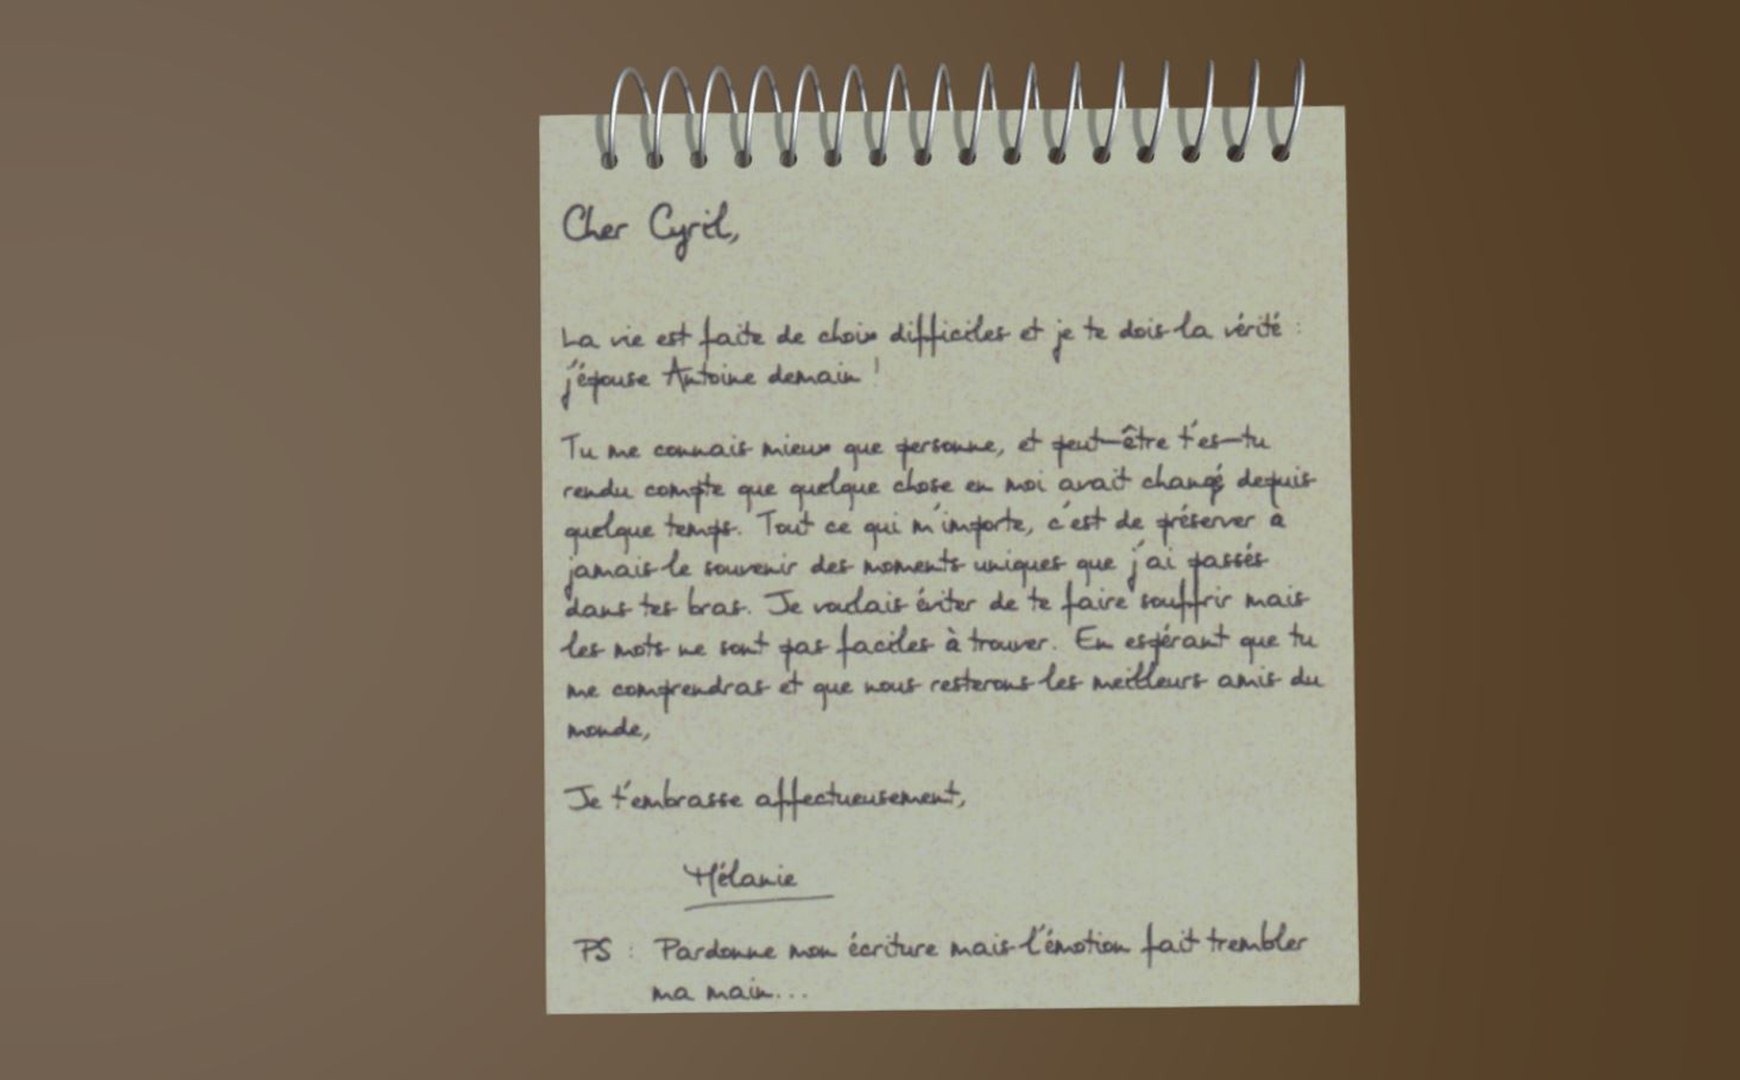 Cher Cyril,
La vie est faite de choix difficiles et je te dois la vérité :
j'épouse Antoine demain !
Tu me connais mieux que personne, et peut-être t'es-tu
rendu compte que quelque chose en moi avait changé depuis
quelque temps. Tout ce qui m'importe, c'est de préserver à
jamais le souvenir des moments uniques que j'ai passés
dans tes bras. Je voulais éviter de te faire souffrir mais
les mots ne sont pas faciles à trouver. En espérant que tu
me comprendras et que nous resterons les meilleurs amis du
monde,
Je t'embrasse affectueusement,
Mélanie
PS : Pardonne mon écriture mais l'émotion fait trembler
ma main...